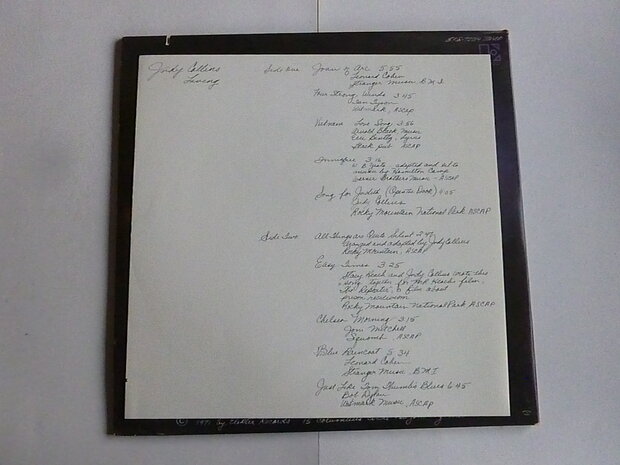 Judy Collins
Living
Side One
Joan of Arc 5:55
Leonard Cohen
Stranger Music B.M.I
Four Strong Winds 3:45
Ian Tyson
ASCAP
Vietnam Love Song 3:56
Arnold Black Music
Eric Bentley, Lyrics
Black Pub ASCAP
Innisfree 3:16
W B Yeats adapted and set to
music by Hamilton Camp
Warner Brothers Music - ASCAP
Song for Judith (Open the Door) 4:05
Judy Collins
Rocky Mountain National Park ASCAP
Side Two
All Things are Quite Silent 2:47
Arranged and adapted by Judy Collins
Rocky Mountain, ASCAP
Easy Times 3:25
Stacy Keach and Judy Collins wrote this
song together for Mr Keach's film,
The Repeater, a film about
prison recidivism
Rocky Mountain National Park ASCAP
Chelsea Morning 3:15
Joni Mitchell
Siquomb, ASCAP
Blue Raincoat 5:34
Leonard Cohen
Stranger Music, B.M.I.
Just Like Tom Thumb's Blues 6:45
Bob Dylan
Witmark Music, ASCAP
© 1971 by Elektra Records 15 Columbus